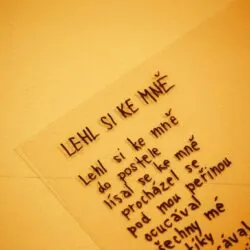 LEHL SI KE MNĚ
Lehl si ke mně
do postele
lísal se ke mně
procházel se
pod mou peřinou
ocucával
všechny mé